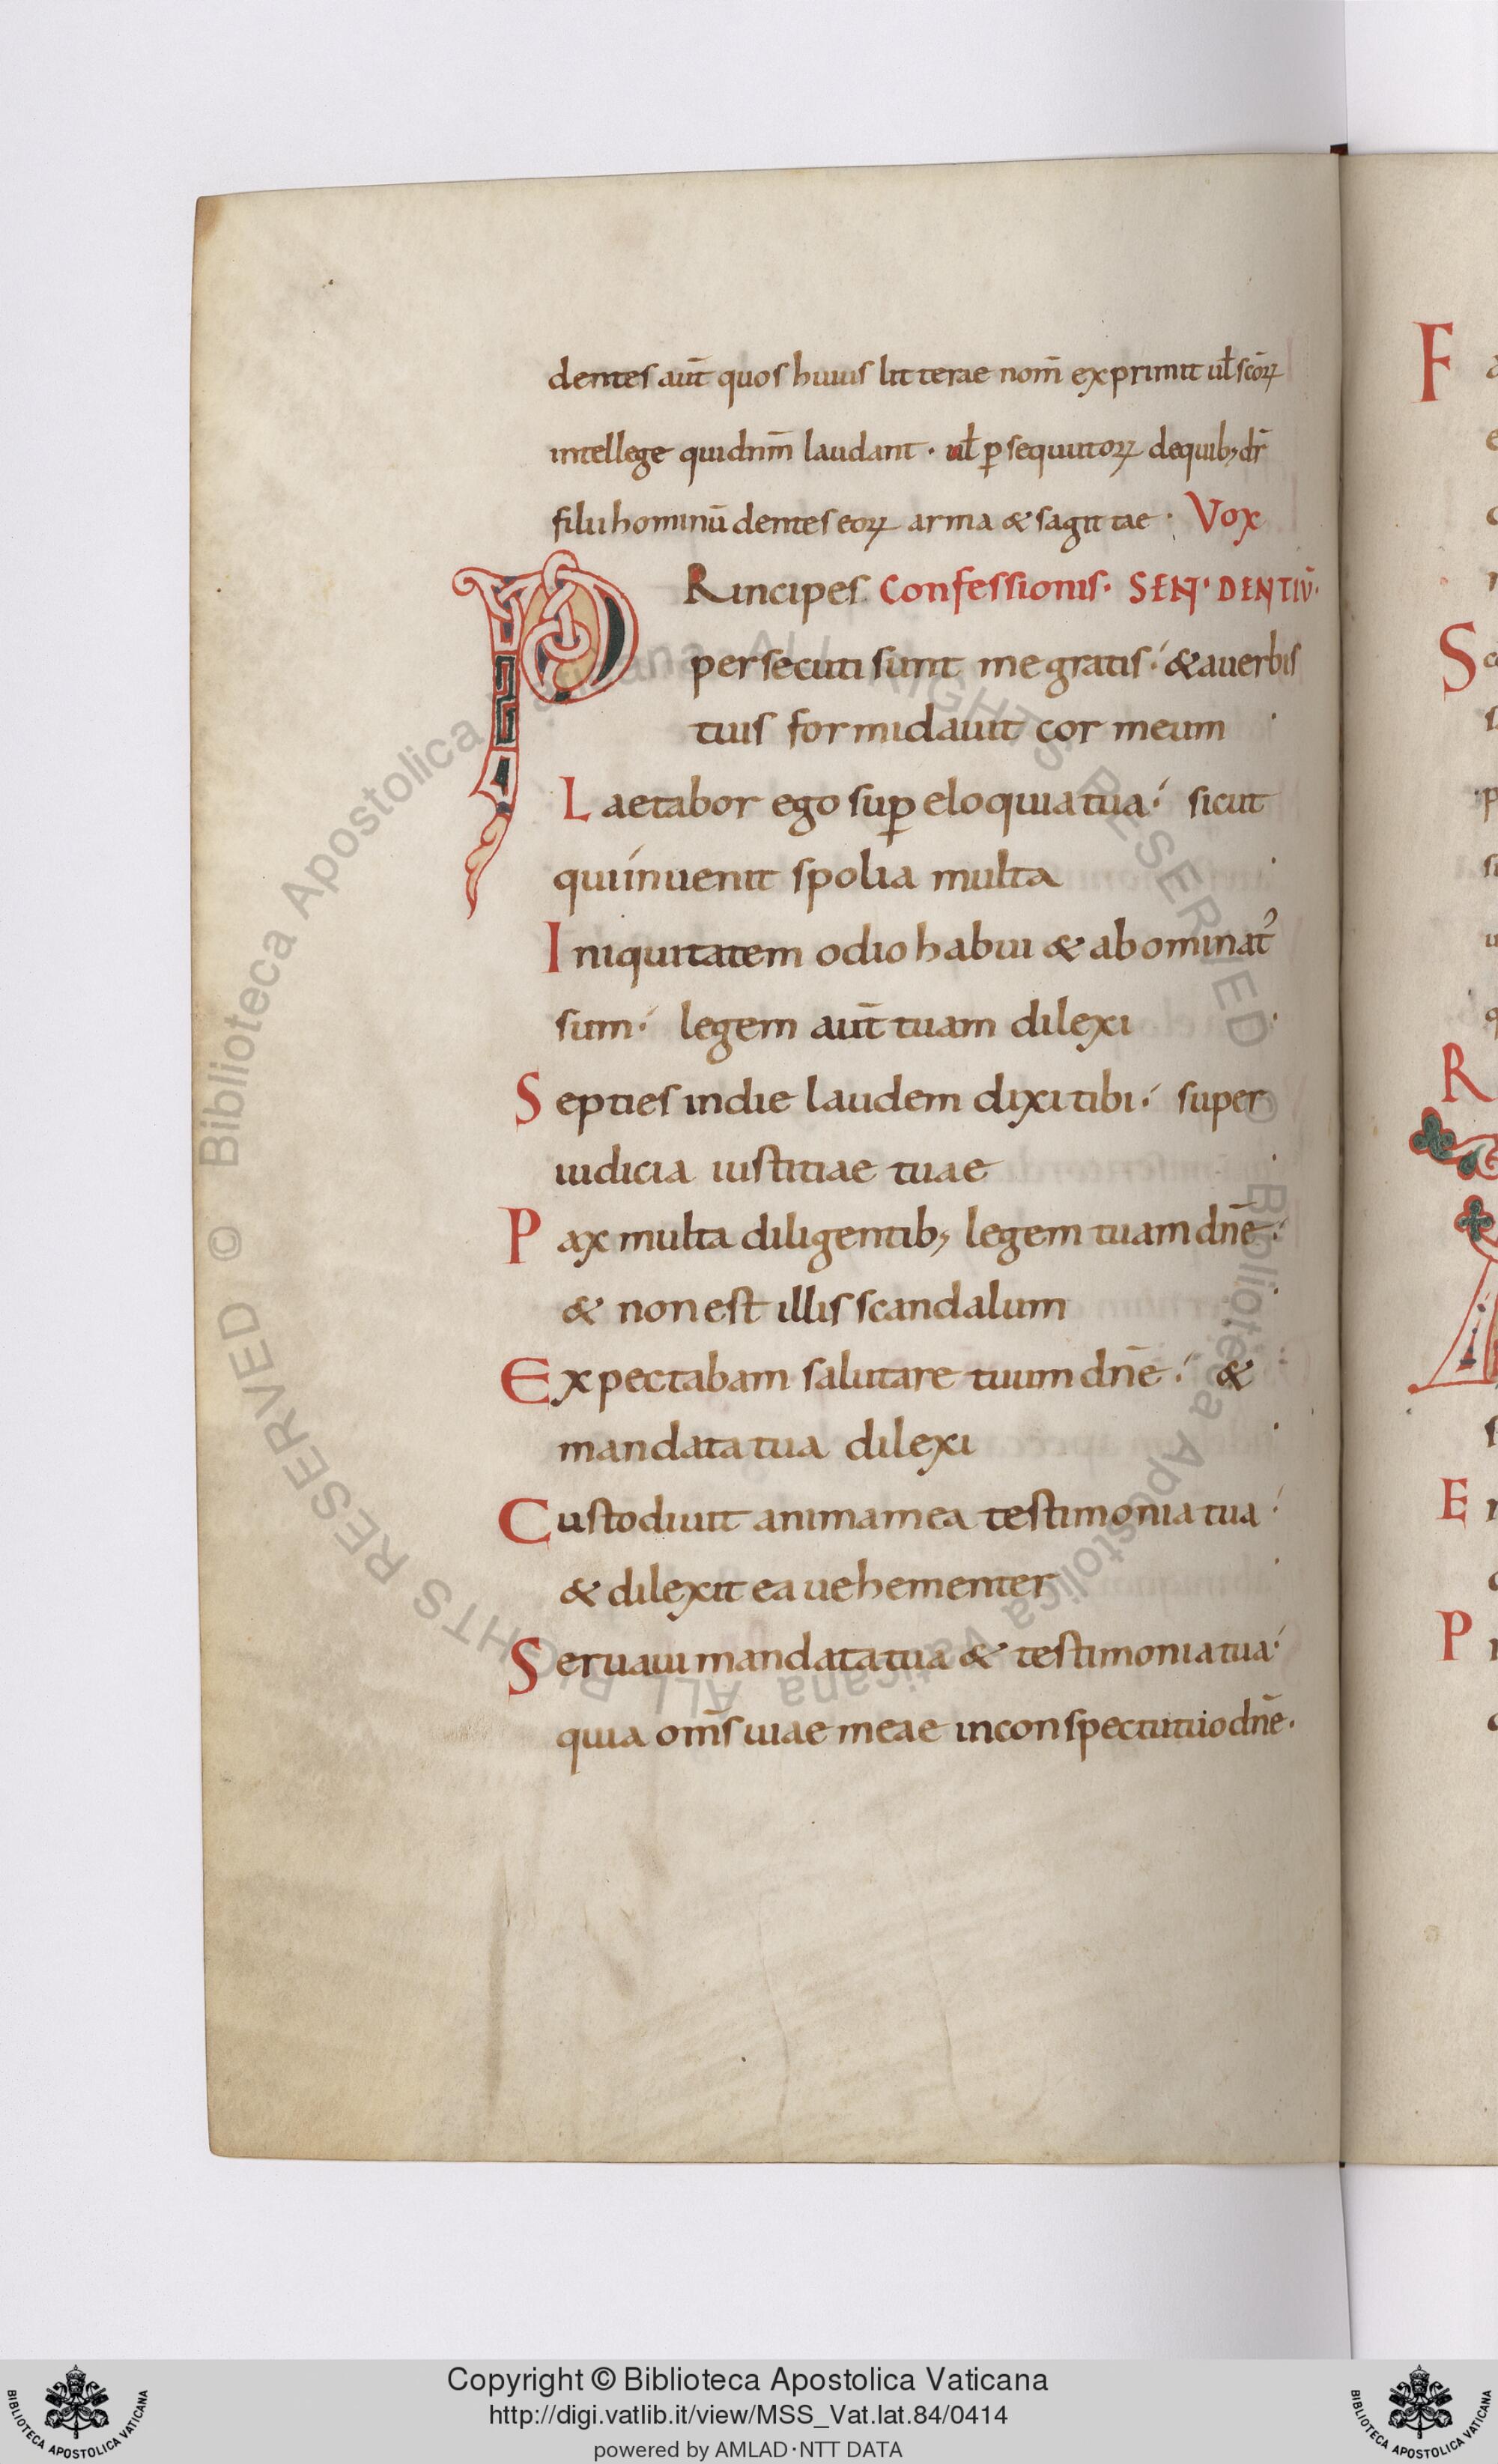 dentes aut̄ quos huius litterae nom̄ exprimit ul̄ scōꝝ
intellege qui dnm̄ laudant · ul̄ ꝑsequutoꝝ de quib; dr̄
filii hominū dentes eoꝝ arma & sagittae · Vox
PRincipes Confessionis · SEN̄ · DENTIŪ ·
persecuti sunt me gratis ⁖ & a uerbis
tuis formidauit cor meum ·
Laetabor ego suꝑ eloquia tua ⁖ sicut
qui inuenit spolia multa ·
Iniquitatem odio habui & abominat᾽
sum ⁖ legem aut̄ tuam dilexi ·
Septies in die laudem dixi tibi ⁖ super
iudicia iustitiae tuae ·
Pax multa diligentib; legem tuam dnē ⁖
& non est illis scandalum ·
Expectabam salutare tuum dnē ⁖ &
mandata tua dilexi ·
Custodiuit anima mea testimonia tua ⁖
& dilexit ea uehementer ·
Seruaui mandata tua & testimonia tua ⁖
quia om̄s uiae meae in conspectu tuo dnē ·
F
S
R
E
P
© Biblioteca Apostolica Vaticana ALL RIGHTS RESERVED © Biblioteca Apostolica Vaticana ALL RIGHTS RESERVED
Copyright © Biblioteca Apostolica Vaticana
http://digi.vatlib.it/view/MSS_Vat.lat.84/0414
powered by AMLAD·NTT DATA
BIBLIOTECA APOSTOLICA VATICANA
BIBLIOTECA APOSTOLICA VATICANA